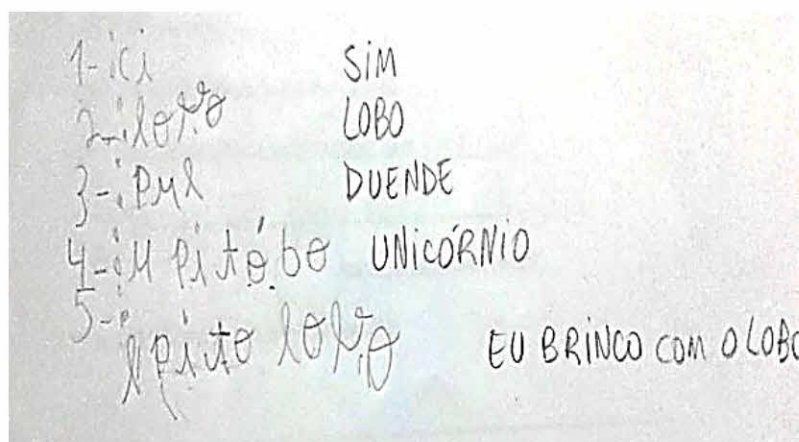 1-ici SIM
2-ilovo LOBO
3-ipul DUENDE
4-iu pitóbo UNICÓRNIO
5-i
lpito lovo EU BRINCO COM O LOBO